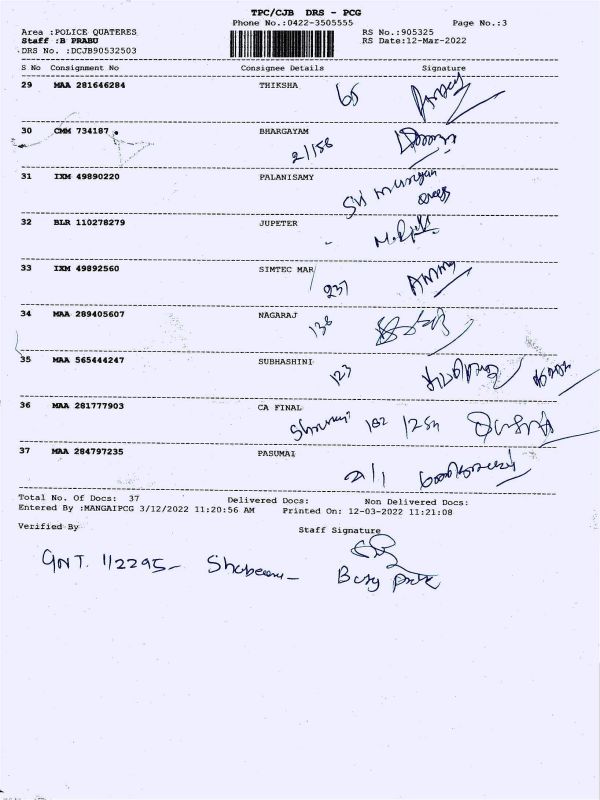 TPC/CJB DRS - PCG
Phone No.:0422-3505555 Page No.:3
Area :POLICE QUATERES RS No.:905325
Staff :B PRABU RS Date:12-Mar-2022
DRS No. :DCJB90532503
S No Consignment No Consignee Details Signature
29 MAA 281646284 THIKSHA 65
30 CMM 734187 BHARGAYAM
21156
31 IXM 49890220 PALANISAMY
Sri murugan
32 BLR 110278279 JUPETER
33 IXM 49892560 SIMTEC MAR
237
34 MAA 289405607 NAGARAJ
138
35 MAA 565444247 SUBHASHINI
123
36 MAA 281777903 CA FINAL
182
37 MAA 284797235 PASUMAI
21/1
Total No. Of Docs: 37 Delivered Docs: Non Delivered Docs:
Entered By :MANGAIPCG 3/12/2022 11:20:56 AM Printed On: 12-03-2022 11:21:08
Verified By Staff Signature
GNT. 112295-